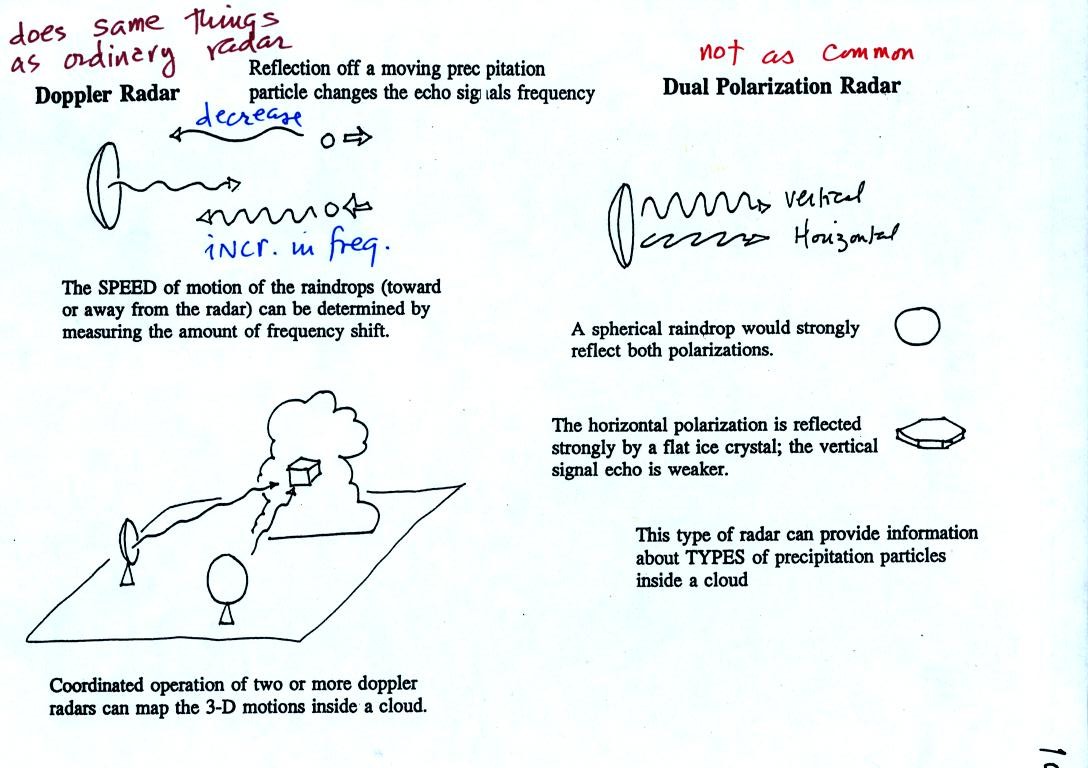 does same things
as ordinary radar
Doppler Radar
Reflection off a moving prec pitation
particle changes the echo sig als frequency
decrease
incr. in freq.
The SPEED of motion of the raindrops (toward
or away from the radar) can be determined by
measuring the amount of frequency shift.
Coordinated operation of two or more doppler
radars can map the 3-D motions inside a cloud.
not as common
Dual Polarization Radar
vertical
Horizontal
A spherical raindrop would strongly
reflect both polarizations.
The horizontal polarization is reflected
strongly by a flat ice crystal; the vertical
signal echo is weaker.
This type of radar can provide information
about TYPES of precipitation particles
inside a cloud